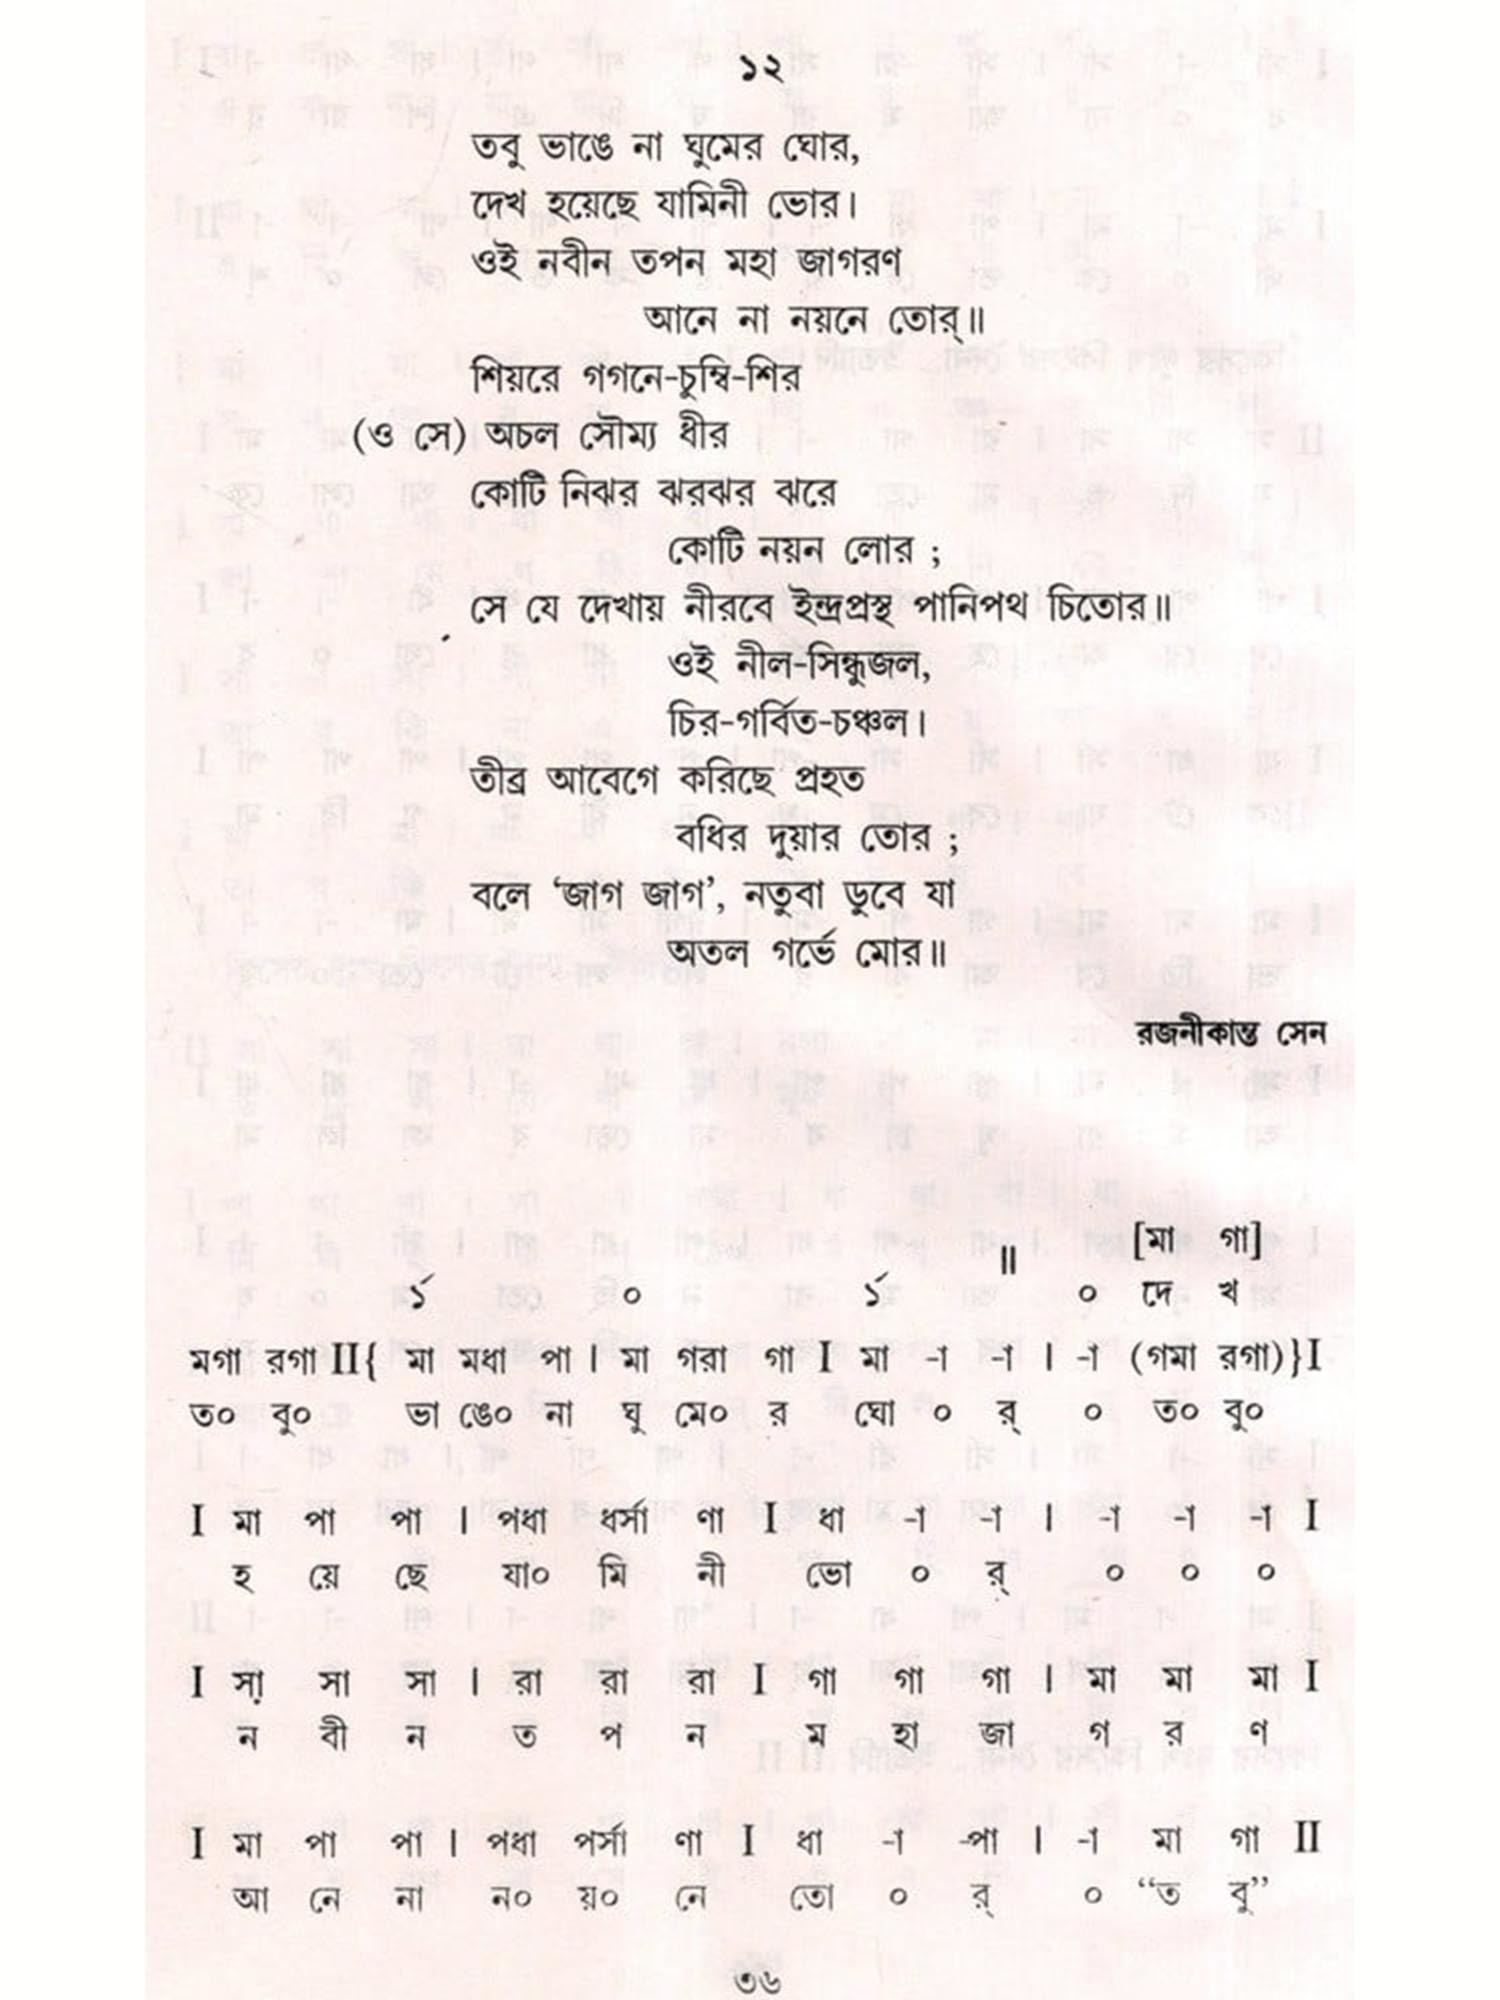 ১২
তবু ভাঙে না ঘুমের ঘোর,
দেখ হয়েছে যামিনী ভোর।
ওই নবীন তপন মহা জাগরণ
আনে না নয়নে তোর্॥
শিয়রে গগনে-চুম্বি-শির
(ও সে) অচল সৌম্য ধীর
কোটি নিঝর ঝরঝর ঝরে
কোটি নয়ন লোর ;
সে যে দেখায় নীরবে ইন্দ্রপ্রস্থ পানিপথ চিতোর॥
ওই নীল-সিন্ধুজল,
চির-গর্বিত-চঞ্চল।
তীব্র আবেগে করিছে প্রহত
বধির দুয়ার তোর ;
বলে ‘জাগ জাগ’, নতুবা ডুবে যা
অতল গর্ভে মোর॥
রজনীকান্ত সেন
॥ [মা গা]
১´ ০ ১´ ০ দে খ
মগা রগা II{ মা মধা পা । মা গরা গা I মা -া -া । -া (গমা রগা)}I
ত০ বু০ ভা ঙে০ না ঘু মে০ র ঘো ০ র্ ০ ত০ বু০
I মা পা পা । পধা ধর্সা ণা I ধা -া -া । -া -া -া I
হ য়ে ছে যা০ মি নী ভো ০ র্ ০ ০ ০
I সা় সা সা । রা রা রা I গা গা গা । মা মা মা I
ন বী ন ত প ন ম হা জা গ র ণ
I মা পা পা । পধা পর্সা ণা I ধা -া -পা । -া মা গা II
আ নে না ন০ য়০ নে তো ০ র্ ০ “ত বু”
৩৬